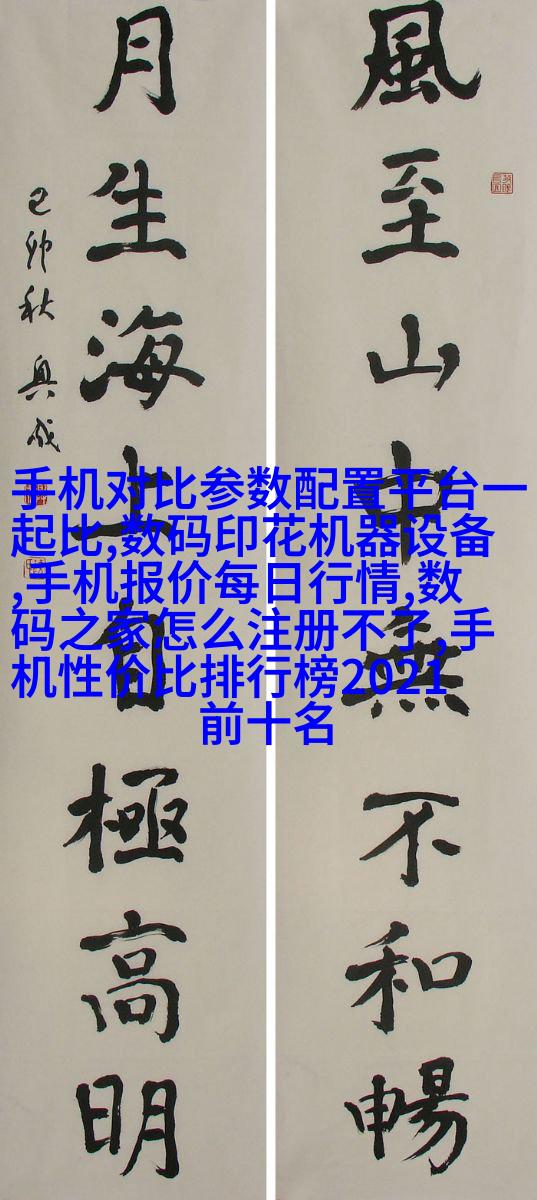 風至山中無不和暢
月生海上自極高明
己卯秋
手机对比参数配置平台一
起比,数码印花机器设备
,手机报价每日行情,数
码之家怎么注册不了,手
机性价比排行榜2021
前十名